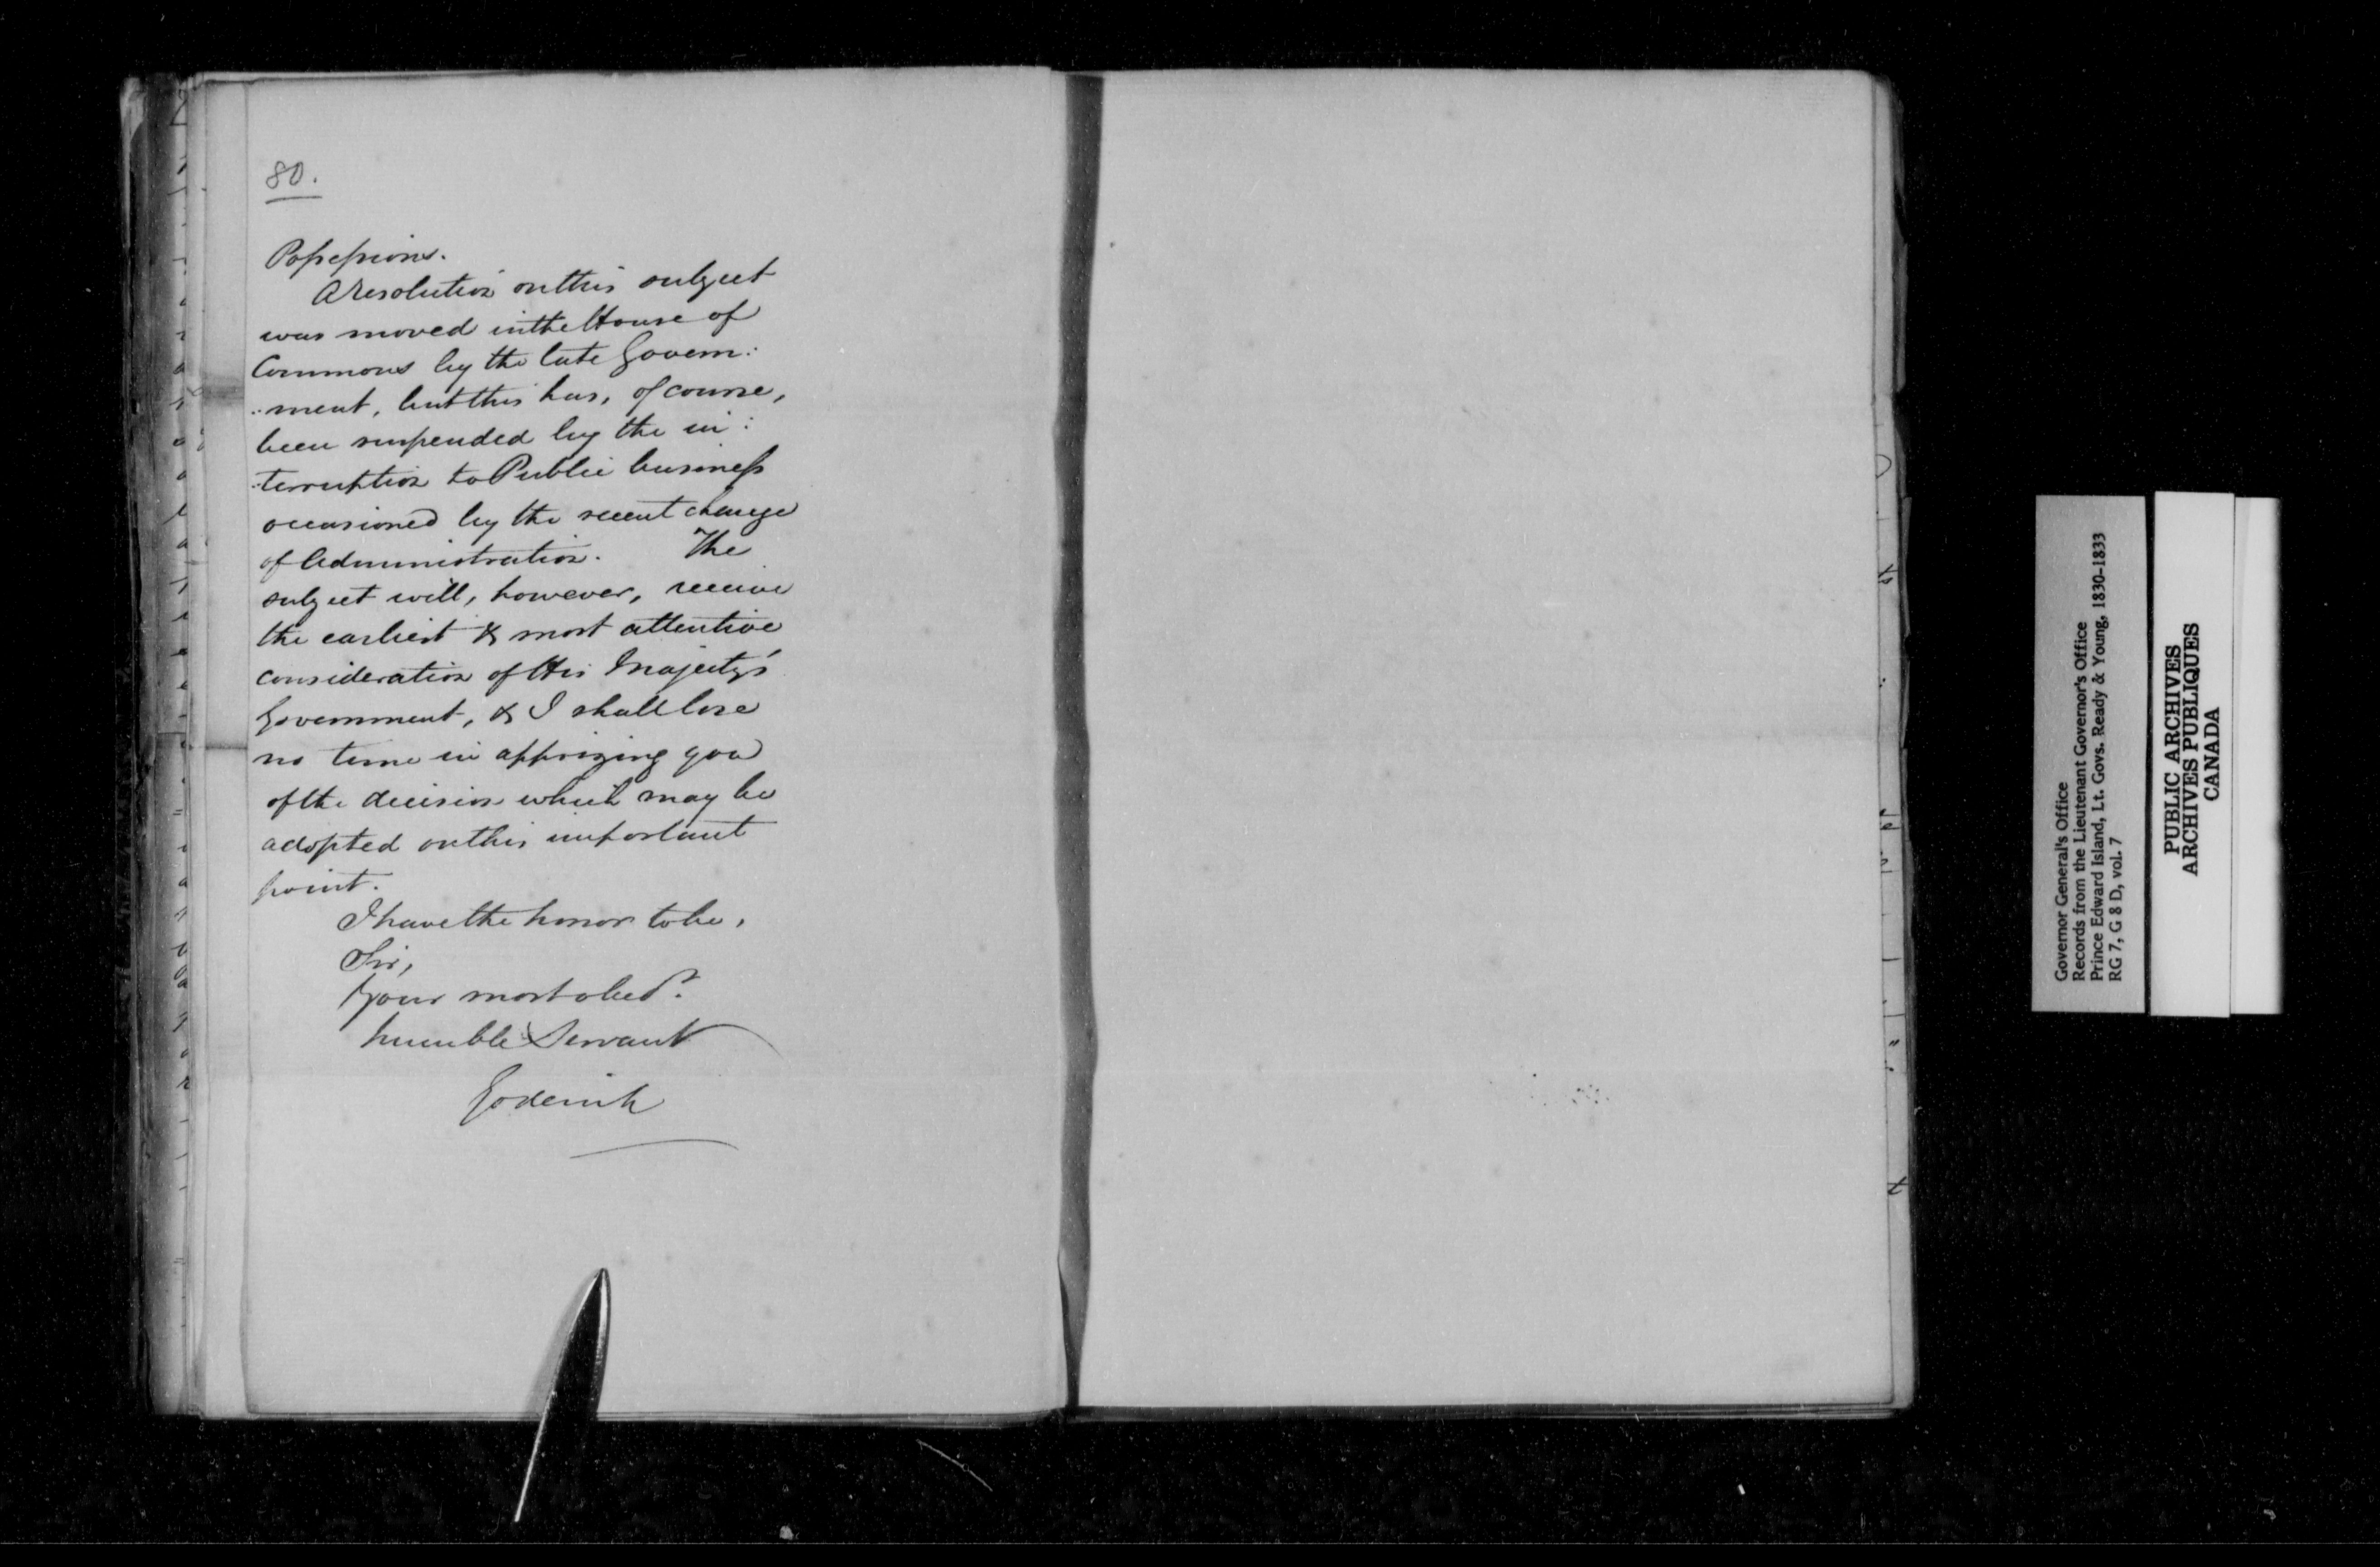 80.
Possessions.
A resolution on this subject
was moved in the House of
Commons by the late Govern:
:ment, but this has, of course,
been suspended by the in:
:terruption to Public business
occasioned by the recent change
of Administration. The
subject will, however, receive
the earliest & most attentive
consideration of His Majesty's
Government, & I shall lose
no time in apprizing you
of the decision which may be
adopted on this important
point.
I have the honor to be,
Sir,
Your most obedt.
humble Servant
Goderich
Governor General's Office
Records from the Lieutenant Governor's Office
Prince Edward Island, Lt. Govs. Ready & Young, 1830-1833
RG 7, G 8 D, vol. 7
PUBLIC ARCHIVES
ARCHIVES PUBLIQUES
CANADA